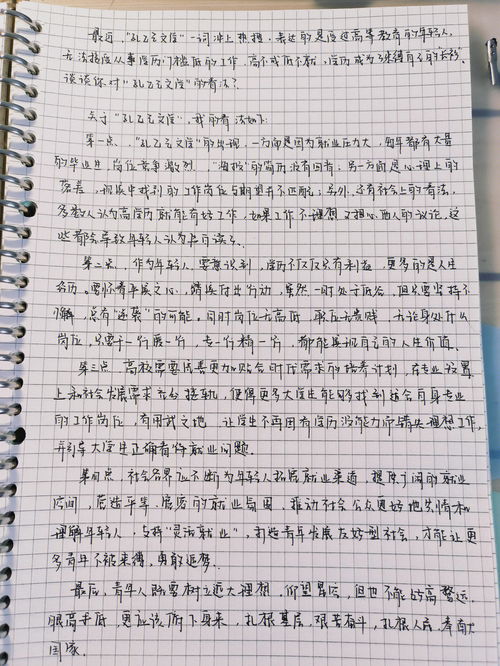 最近，"孔乙己文学"一词冲上热搜，表达的是受过高等教育的年轻人，
无法接受从事学历门槛低的工作，高不成低不就，学历成为了束缚自己的"长衫"，
谈谈你对"孔乙己文学"的看法？
关于"孔乙己文学"，我的看法如下：
第一点、"孔乙己文学"的出现，一方面是因为就业压力大，每年都有大量
的毕业生，岗位竞争激烈，"海投"的简历没有回音；另一方面是心理上的
落差，现实中找到的工作岗位与期望并不匹配；另外，还有社会上的看法，
多数人认为高学历就能有好工作，如果工作不理想又担心他人的议论，这
些都会导致年轻人认为书白读了。
第二点、作为年轻人，要意识到，学历不仅仅只有利益，更多的是人生
经历，要怀着平衡之心，情绪付出行动，虽然一时处于低谷，但只要坚持不
懈，总有"逆袭"的可能。同时岗位无高低，职位无贵贱，无论身处什么
岗位，只要干一行爱一行，专一行精一行，都能实现自己的人生价值。
第三点、高校需要完善更加贴合时代需求的培养计划，在专业设置
上和社会发展需求充分接轨，使得更多大学生能够找到贴合自身专业
的工作岗位，有用武之地，让学生不再因有学历没能力而错失理想工作，
并引导大学生正确看待就业问题。
第四点、社会各界应不断为年轻人拓展就业渠道，提供广阔的就业
空间，营造平等、优质的就业氛围，推动社会公众更好地共情和
理解年轻人，支持"灵活就业"，打造青年发展友好型社会，才能让更
多青年不被束缚，勇敢追梦。
最后，青年人既要树立远大理想，仰望星空，但也不能好高骛远，
眼高手低，更应该俯下身来，扎根基层，艰苦奋斗，扎根人民，奉献
国家。